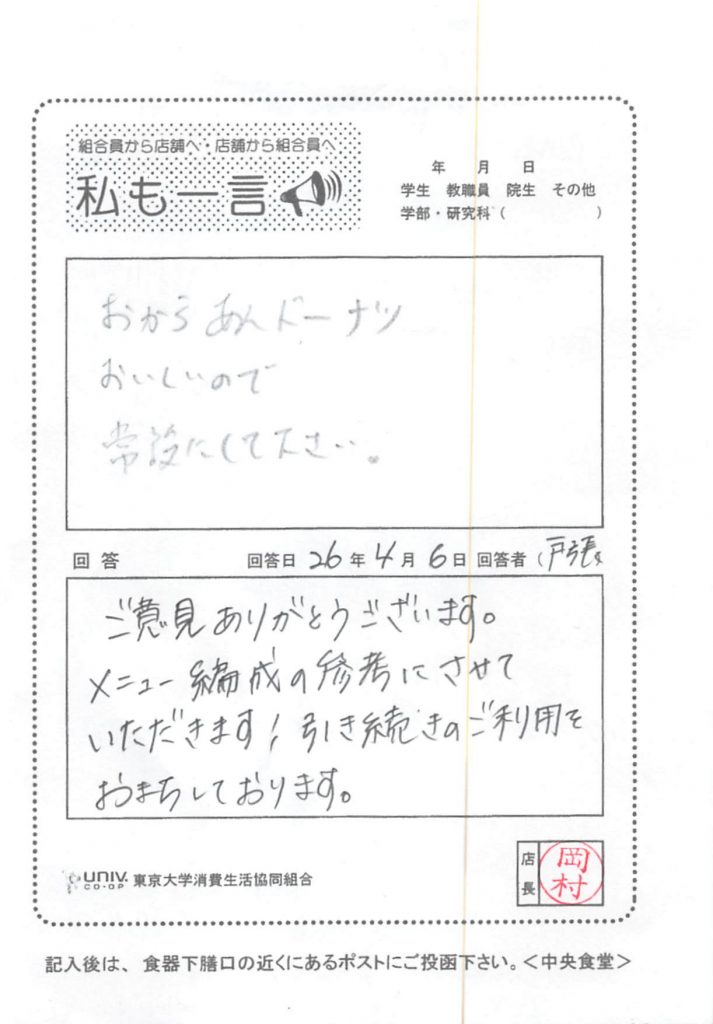 組合員から店舗へ・店舗から組合員へ
私も一言
年 月 日
学生 教職員 院生 その他
学部・研究科( )
おからあんドーナツ
おいしいので
常設にして下さい。
回答 回答日 26年4月6日 回答者(戸張
ご意見ありがとうございます。
メニュー編成の参考にさせて
いただきます! 引き続きのご利用を
おまちしております。
UNIV. CO-OP 東京大学消費生活協同組合
店長 岡村
記入後は、食器下膳口の近くにあるポストにご投函下さい。<中央食堂>